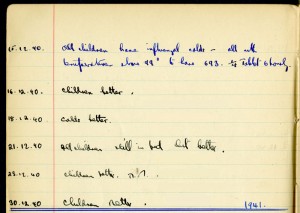 15.12.40. All children have influenzal colds - all with
temperatures above 99° to have
16.12.40. Children better.
18.12.40. Colds better.
21.12.40 All children still in bed but better.
23.12.40 Children better.
30.12.40 Children better. 1941.